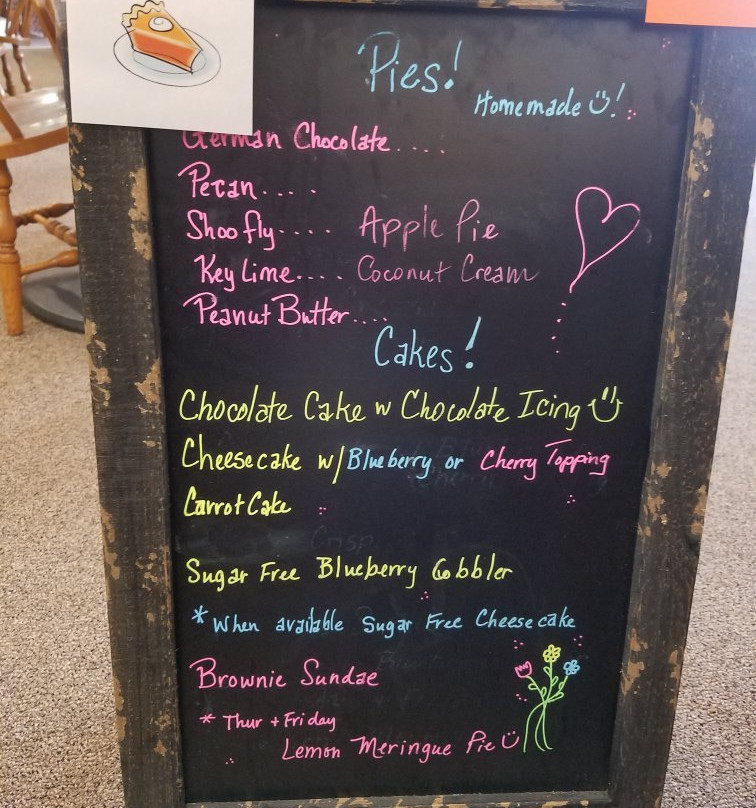 Pies!
Homemade
German Chocolate....
Pecan....
Shoofly.... Apple Pie
Key Lime.... Coconut Cream
Peanut Butter....
Cakes!
Chocolate Cake w Chocolate Icing
Cheesecake w/ Blueberry or Cherry Topping
Carrot Cake
Sugar Free Blueberry Cobbler
*When available Sugar Free Cheesecake
Brownie Sundae
* Thur + Friday
Lemon Meringue Pie